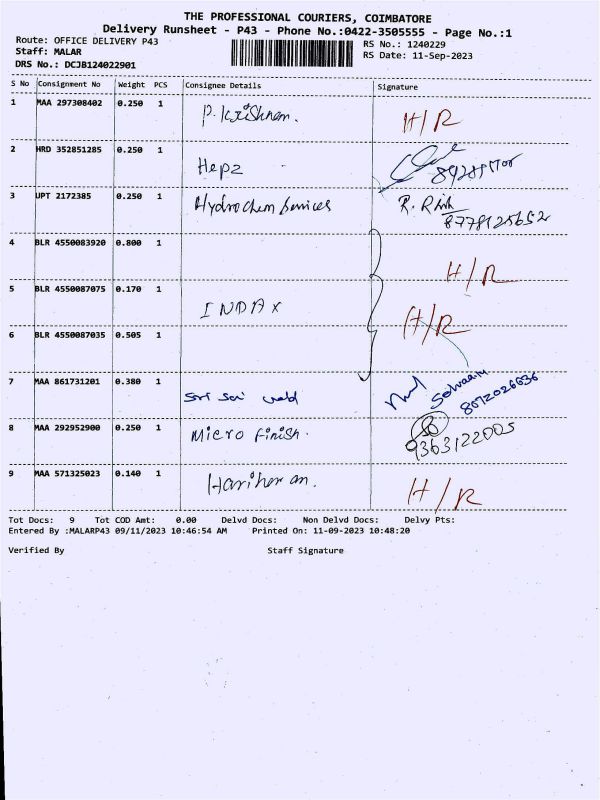 THE PROFESSIONAL COURIERS, COIMBATORE
Delivery Runsheet - P43 - Phone No.:0422-3505555 - Page No.:1
Route: OFFICE DELIVERY P43
Staff: MALAR
DRS No.: DCJB124022901
RS No.: 1240229
RS Date: 11-Sep-2023
S No Consignment No Weight PCS Consignee Details Signature
1 MAA 297308402 0.250 1 P. Krishnan. H/R
2 HRD 352851285 0.250 1 Hepz
3 UPT 2172385 0.250 1 Hydrochem Services R. 8778125652
4 BLR 4550083920 0.800 1 H/R
5 BLR 4550087075 0.170 1 INDAX H/R
6 BLR 4550087035 0.505 1
7 MAA 861731201 0.380 1 Sri Sai weld 8072026636
8 MAA 292952900 0.250 1 Micro Finish. 9363122005
9 MAA 571325023 0.140 1 Hariharan. H/R
Tot Docs: 9 Tot COD Amt: 0.00 Delvd Docs: Non Delvd Docs: Delvy Pts:
Entered By :MALARP43 09/11/2023 10:46:54 AM Printed On: 11-09-2023 10:48:20
Verified By Staff Signature